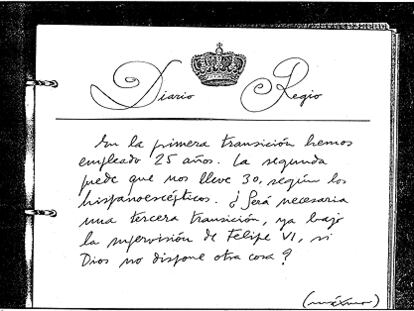 Diario Regio
En la primera transición hemos
empleado 25 años. La segunda
puede que nos lleve 30, según los
hispanoescépticos. ¿Será necesaria
una tercera transición, ya bajo
la supervisión de Felipe VI, si
Dios no dispone otra cosa?
(máximo)